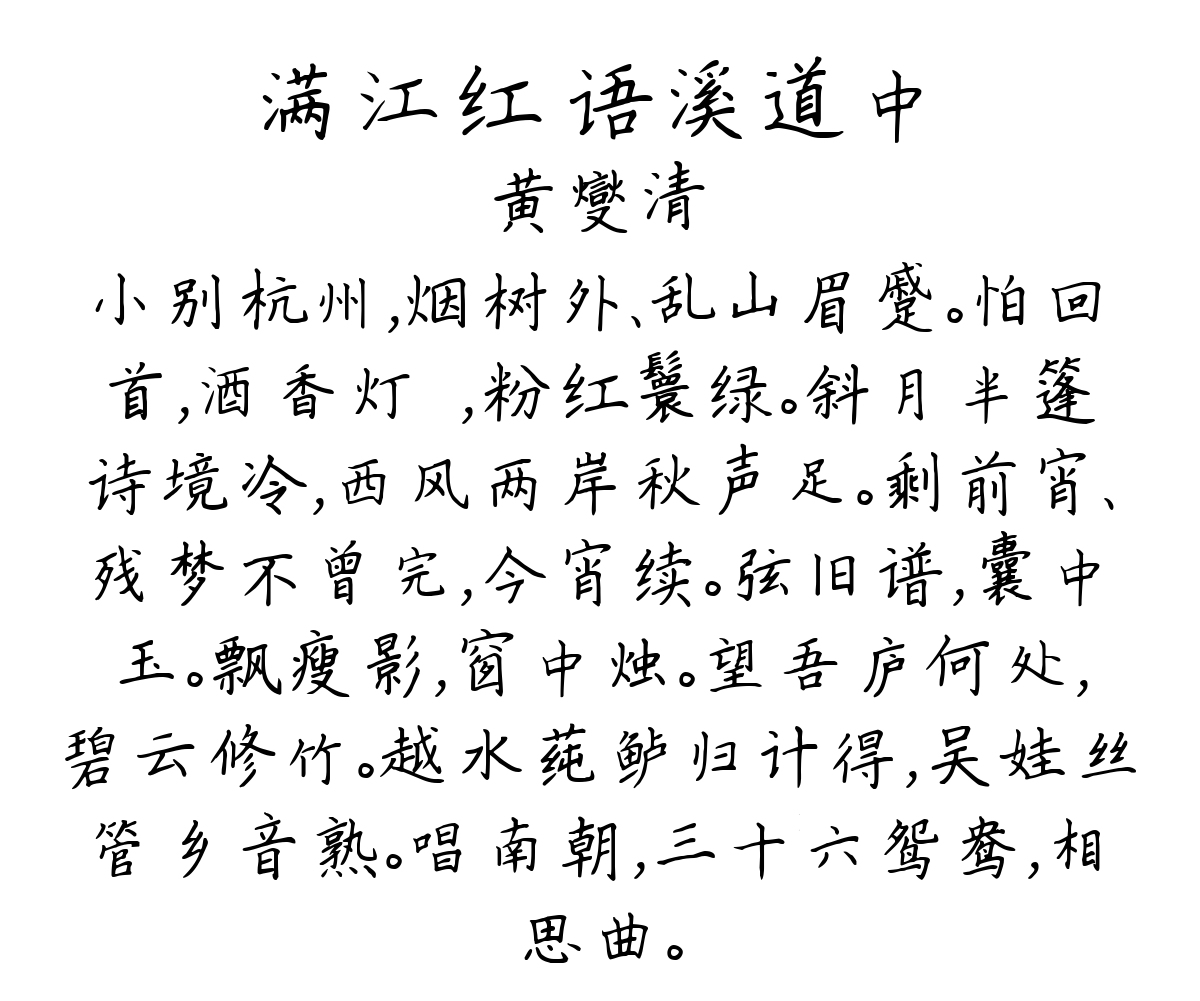 满江红语溪道中
黄燮清
小别杭州,烟树外、乱山眉蹙。怕回
首,酒香灯 ,粉红鬟绿。斜月半篷
诗境冷,西风两岸秋声足。剩前宵、
残梦不曾完,今宵续。弦旧谱,囊中
玉。飘瘦影,窗中烛。望吾庐何处,
碧云修竹。越水莼鲈归计得,吴娃丝
管乡音熟。唱南朝,三十六鸳鸯,相
思曲。